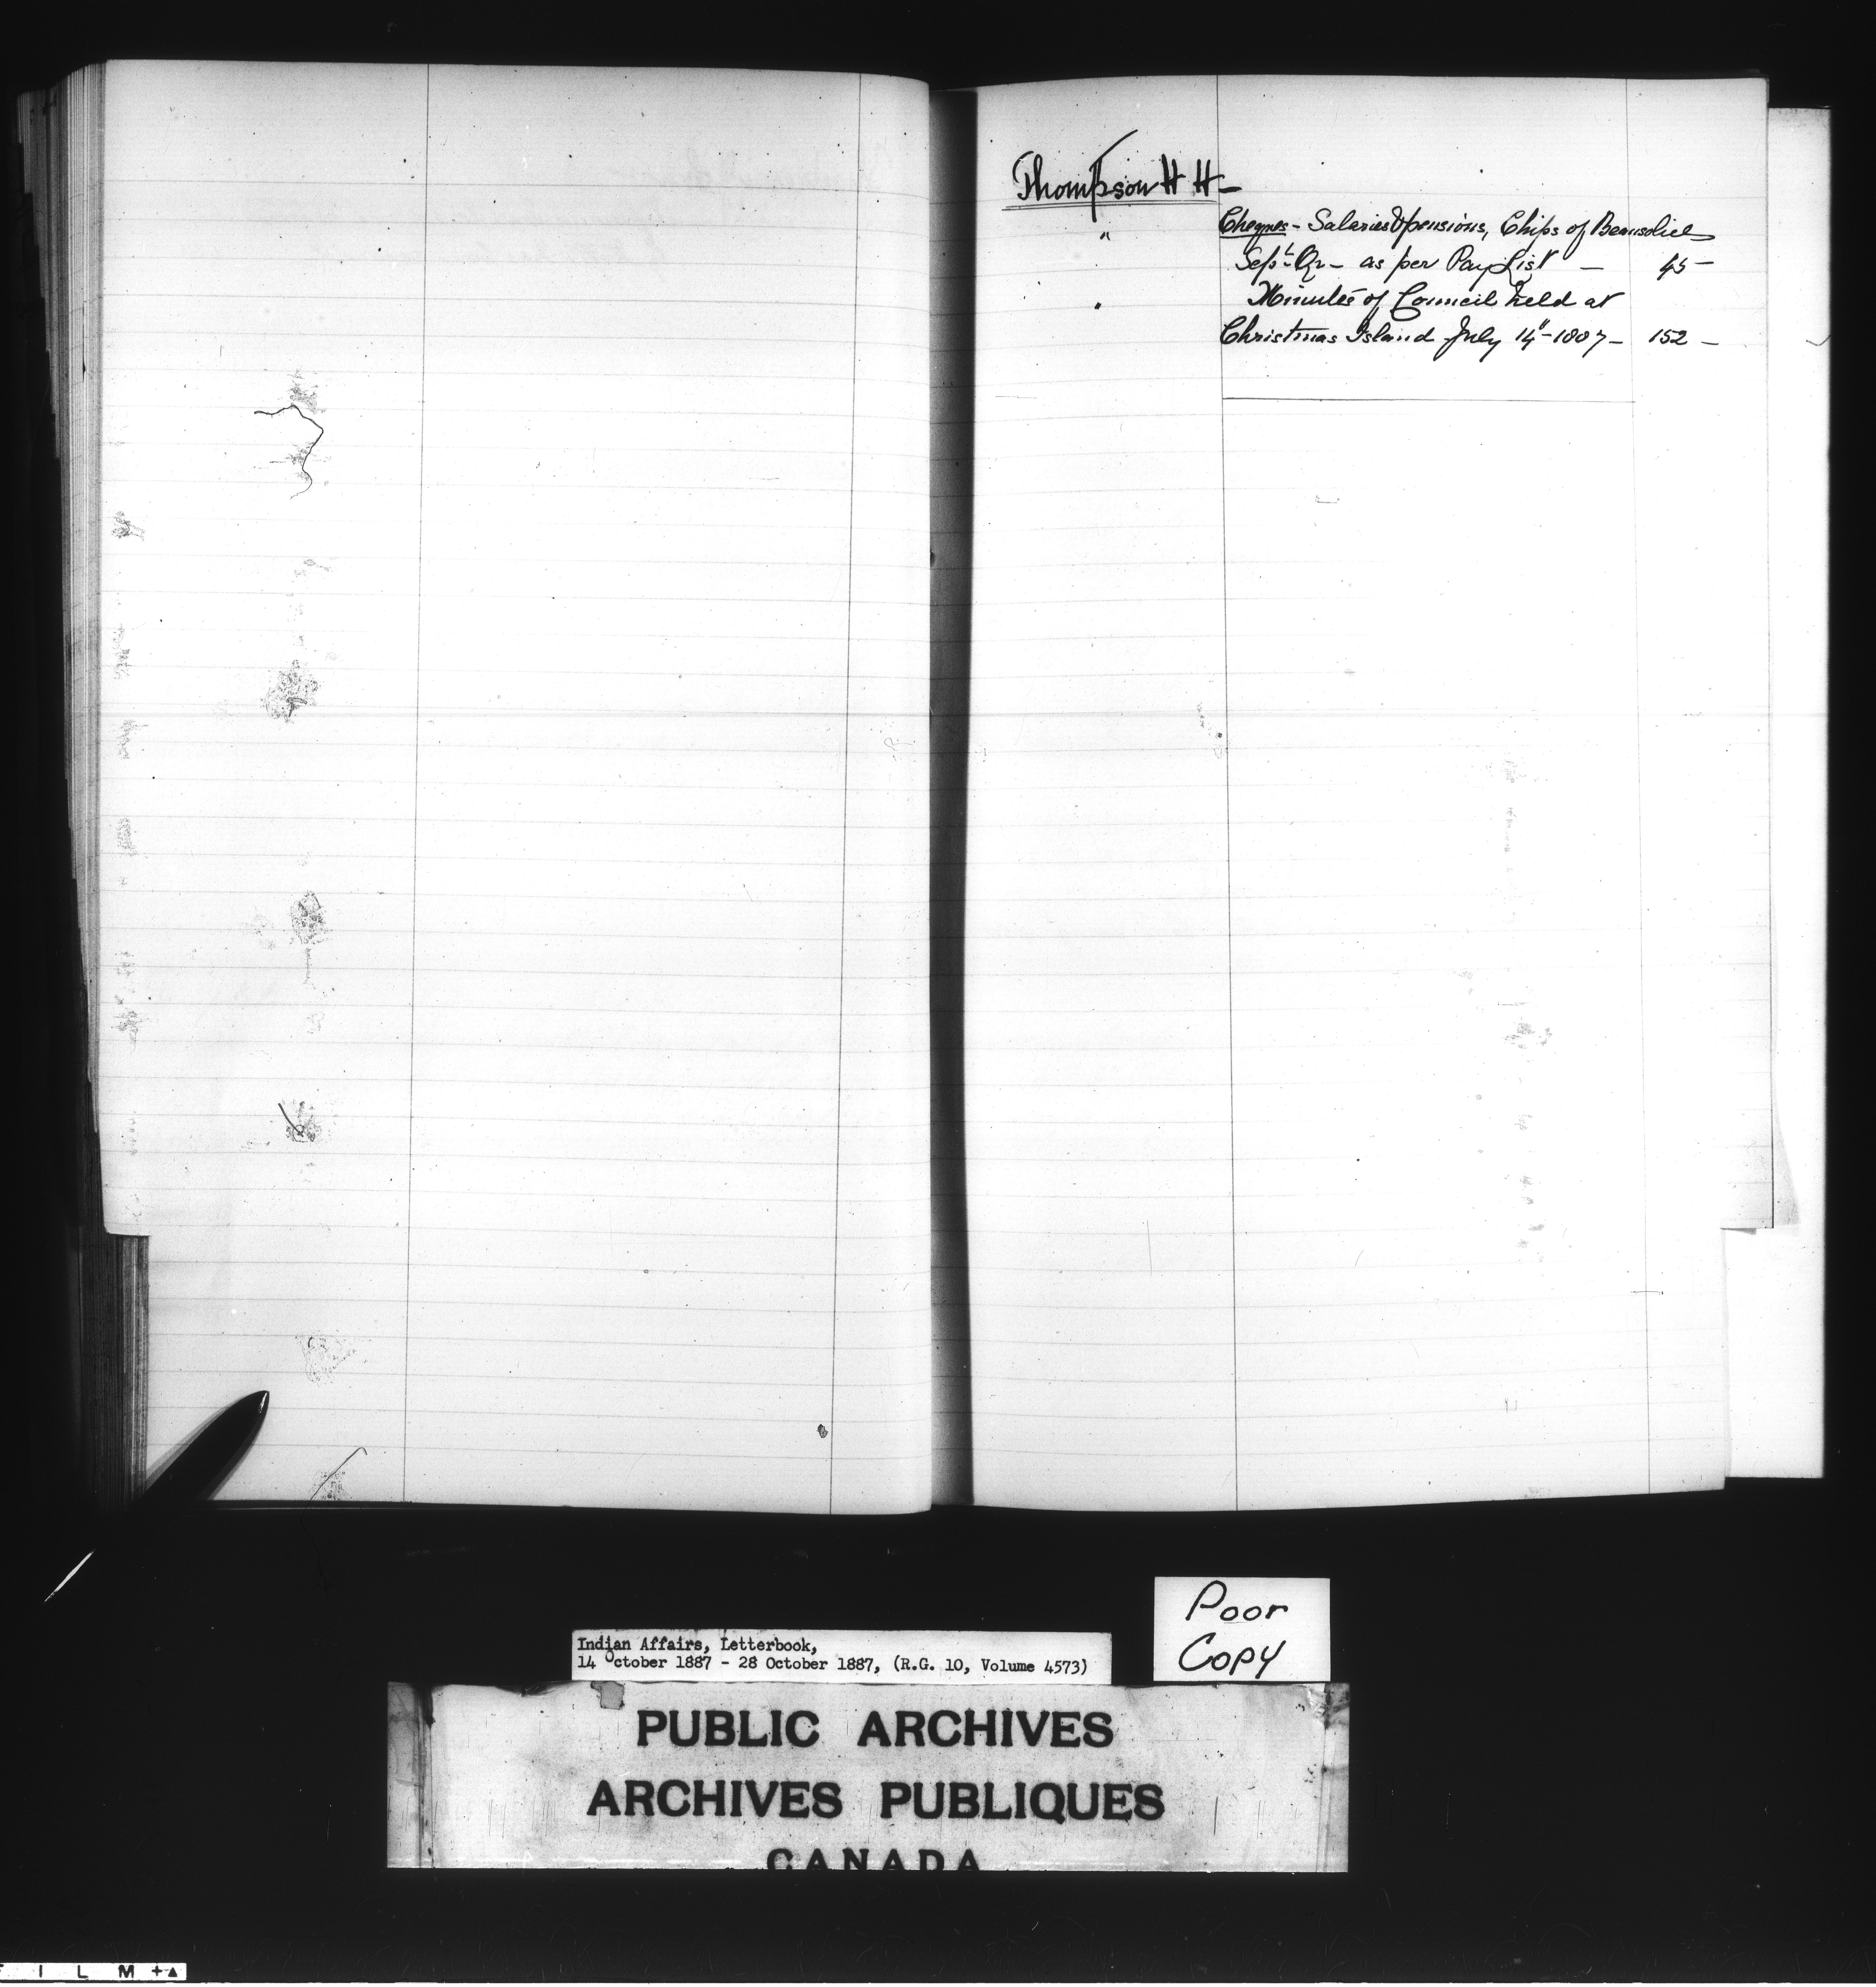 Thompson H H –
" Cheques - Salaries & pensions, Chips of Beausoliel
Sept Qr – as per Pay List – 45 –
" Minutes of Council held at
Christmas Island July 14" - 1887 – 152 –
Poor
Copy
Indian Affairs, Letterbook,
14 October 1887 - 28 October 1887, (R.G. 10, Volume 4573)
PUBLIC ARCHIVES
ARCHIVES PUBLIQUES
CANADA
I L M +▲